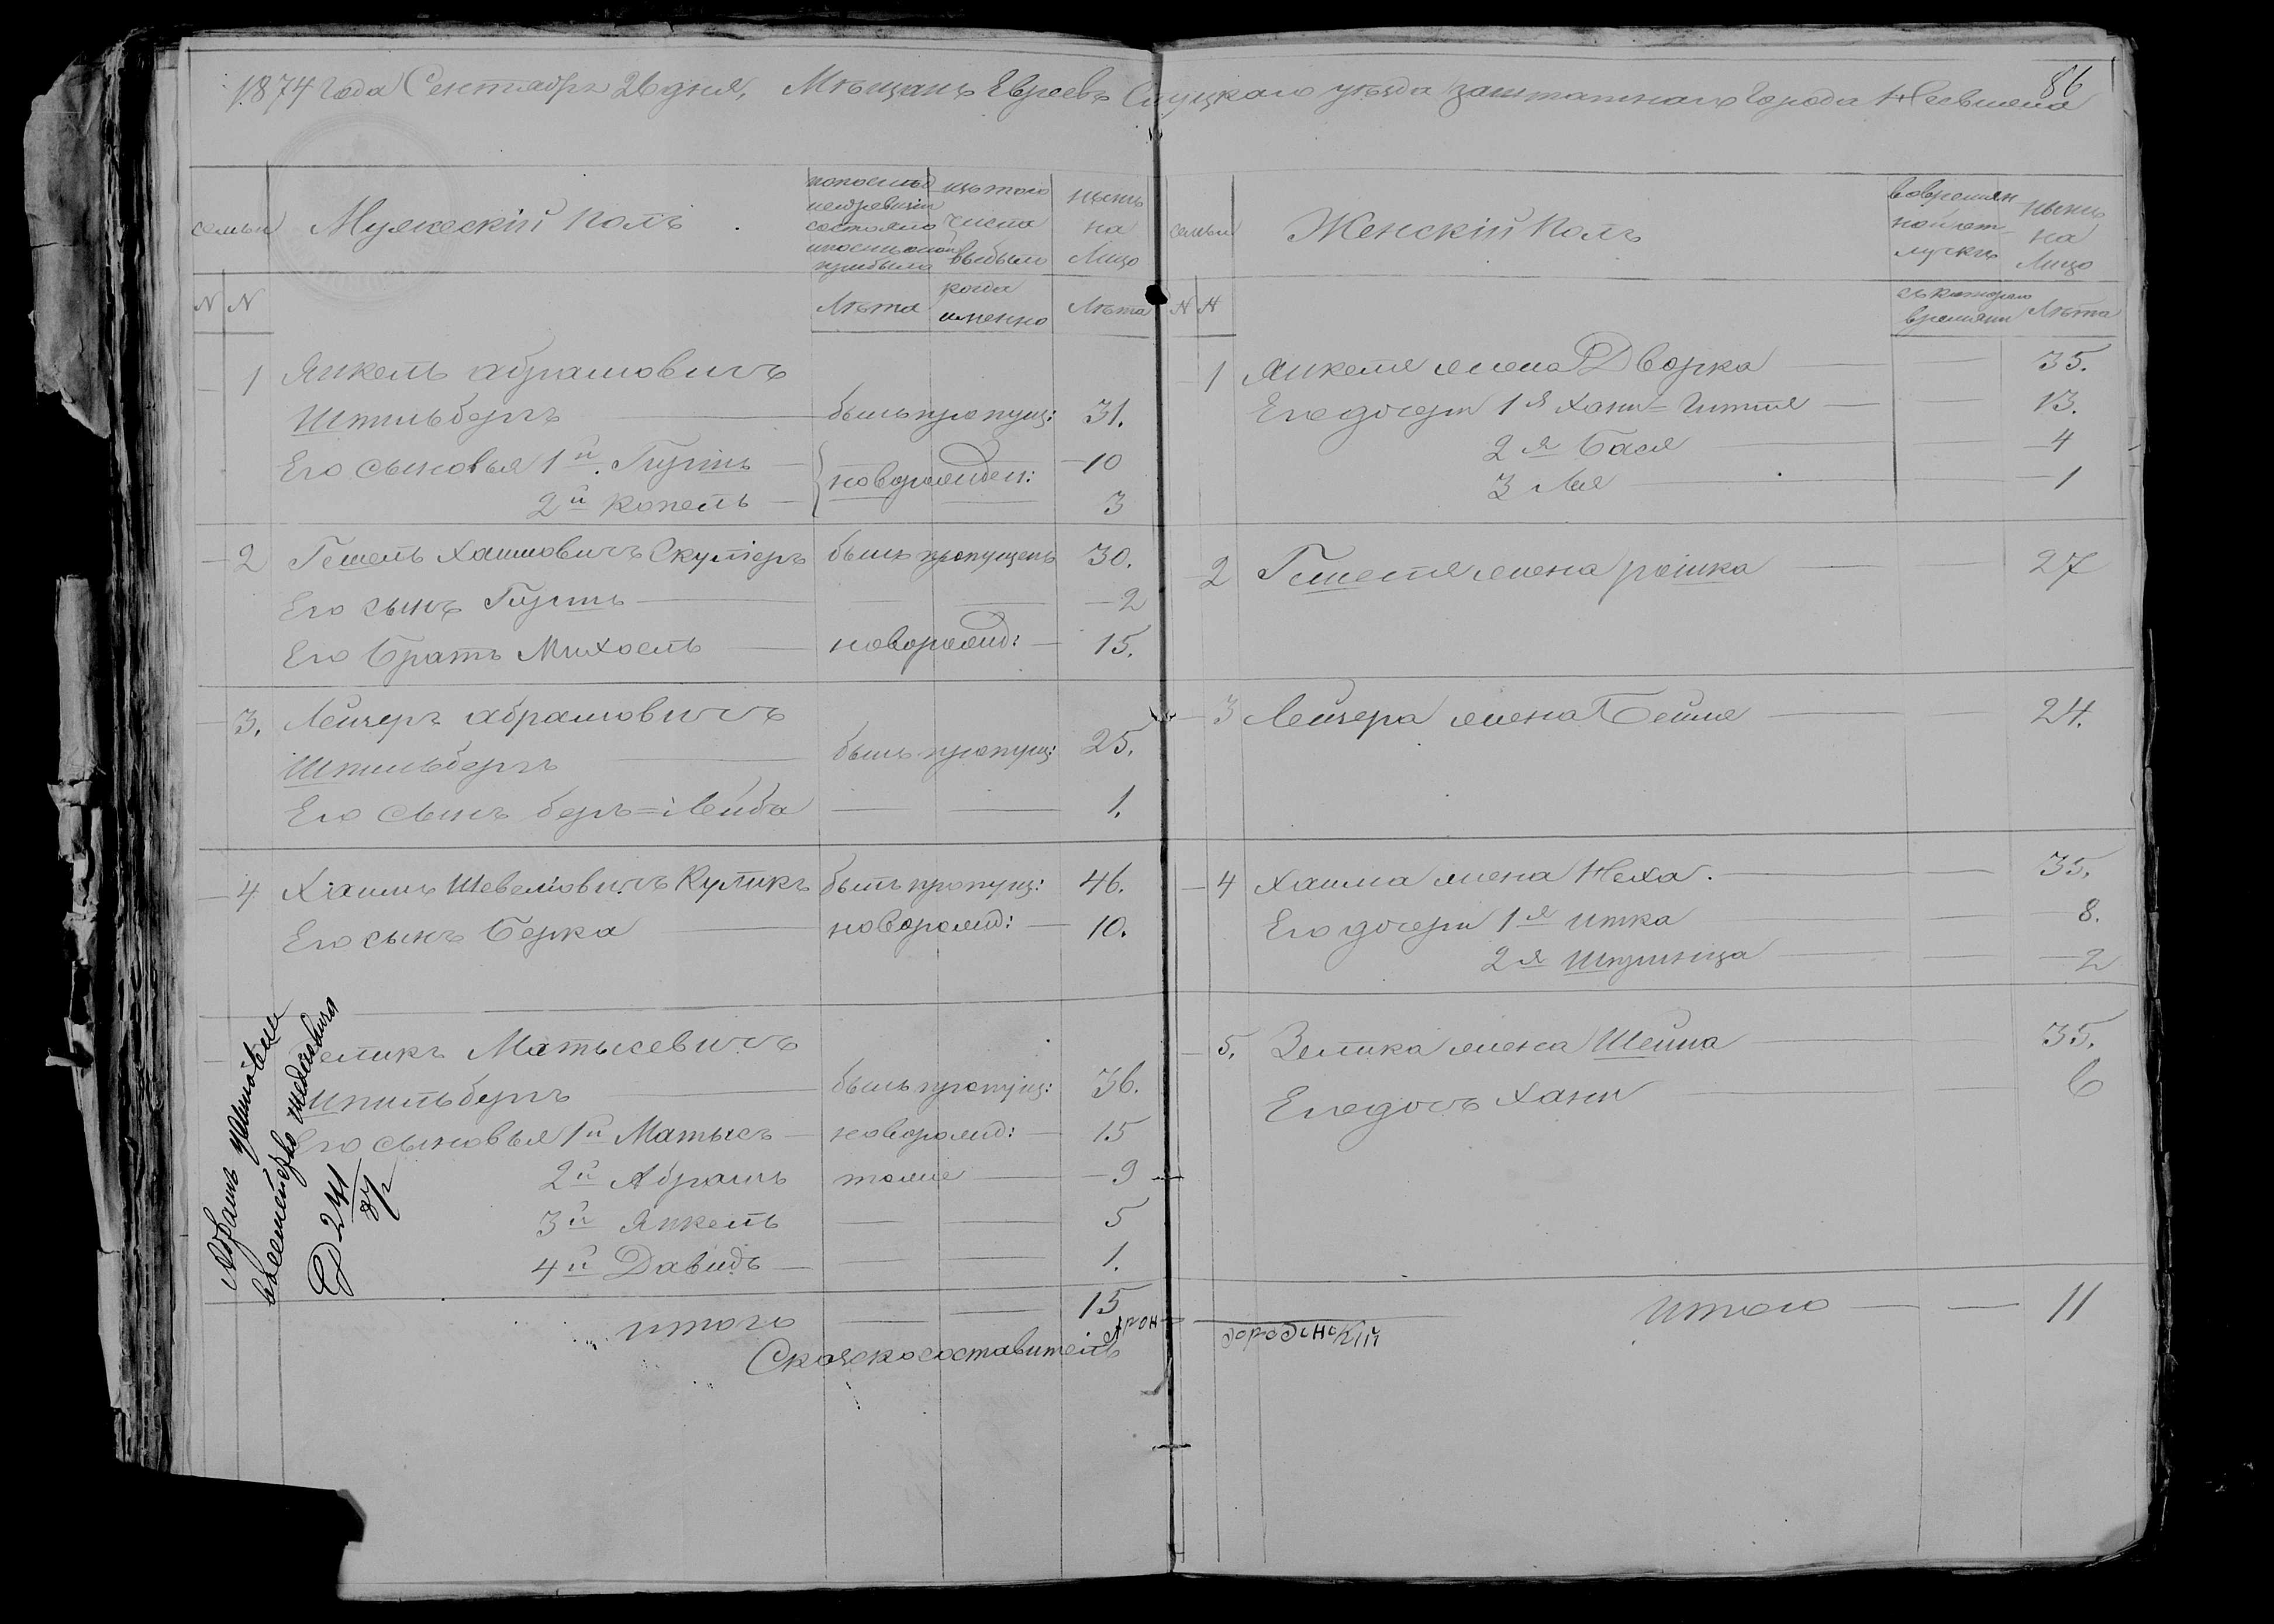 86
1874 года Сентября 26 дня, Мѣщанъ Евреевъ Слуцкаго уѣзда заштатнаго Города Несвижа
семьи
Мужескій Полъ
по послѣд
ней ревизіи
состояло
и послѣ оной
прибыло
изъ того
числа
выбыло
нынѣ
на
Лицо
N N
Лѣта
когда
именно
Лѣта
1 Янкель Абрамовичъ
Штильбергъ былъ пропущ: 31.
Его сыновья 1й. Гиршъ новорожден: 10
2й Копель 3
2 Гешель Хаимовичъ Скутеръ былъ пропущенъ 30.
Его сынъ Гиршъ 2
Его Братъ Михоель новорожд: 15.
3. Лейзеръ Абрамовичъ
Штильбергъ былъ пропущ: 25.
Его сынъ Беръ=Лейба 1.
4 Хаимъ Шевелiовичъ Куликъ былъ пропущ: 46.
Его сынъ Берка новорожд: 10.
Зеликъ Матысевичъ
Шпильбергъ былъ пропущ: 36.
Его сыновья 1й Матысъ новорожд: 15
2й Абрамъ тоже 9
3й Янкель 5
4й Давидъ 1.
итого 15
Сказкосоставитель Арон
Абрамъ
241
87
семьи
Женскій Полъ
во времян
ной от
лучкѣ
нынѣ
на
Лицо
N N
съ котораго
времяни
Лѣта
1 Янкеля жена Дворка 35.
Его дочери 1я Хана=Гитля 13.
2я Бася 4
3 Лея 1
2 Гешеля жена рошка 27
3 Лейзера жена Бейля 24.
4 Хаима жена Неха. 35.
Его дочери 1я Итка 8.
2я Шпринца 2
5. Зелика жена Шейна 35.
Его дочь Хана 6
Итого 11
Городенскій